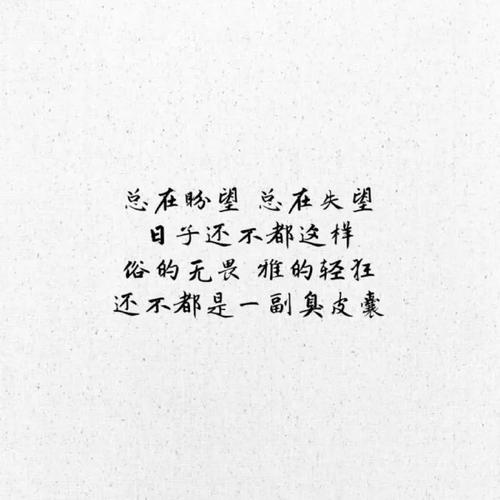 总在盼望 总在失望
日子还不都这样
俗的无畏 雅的轻狂
还不都是一副臭皮囊